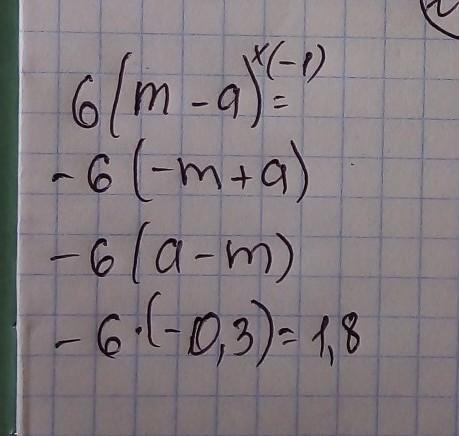 6(m - a)^x(-1) =
- 6(-m + a)
- 6(a - m)
- 6·(-0,3) = 1,8